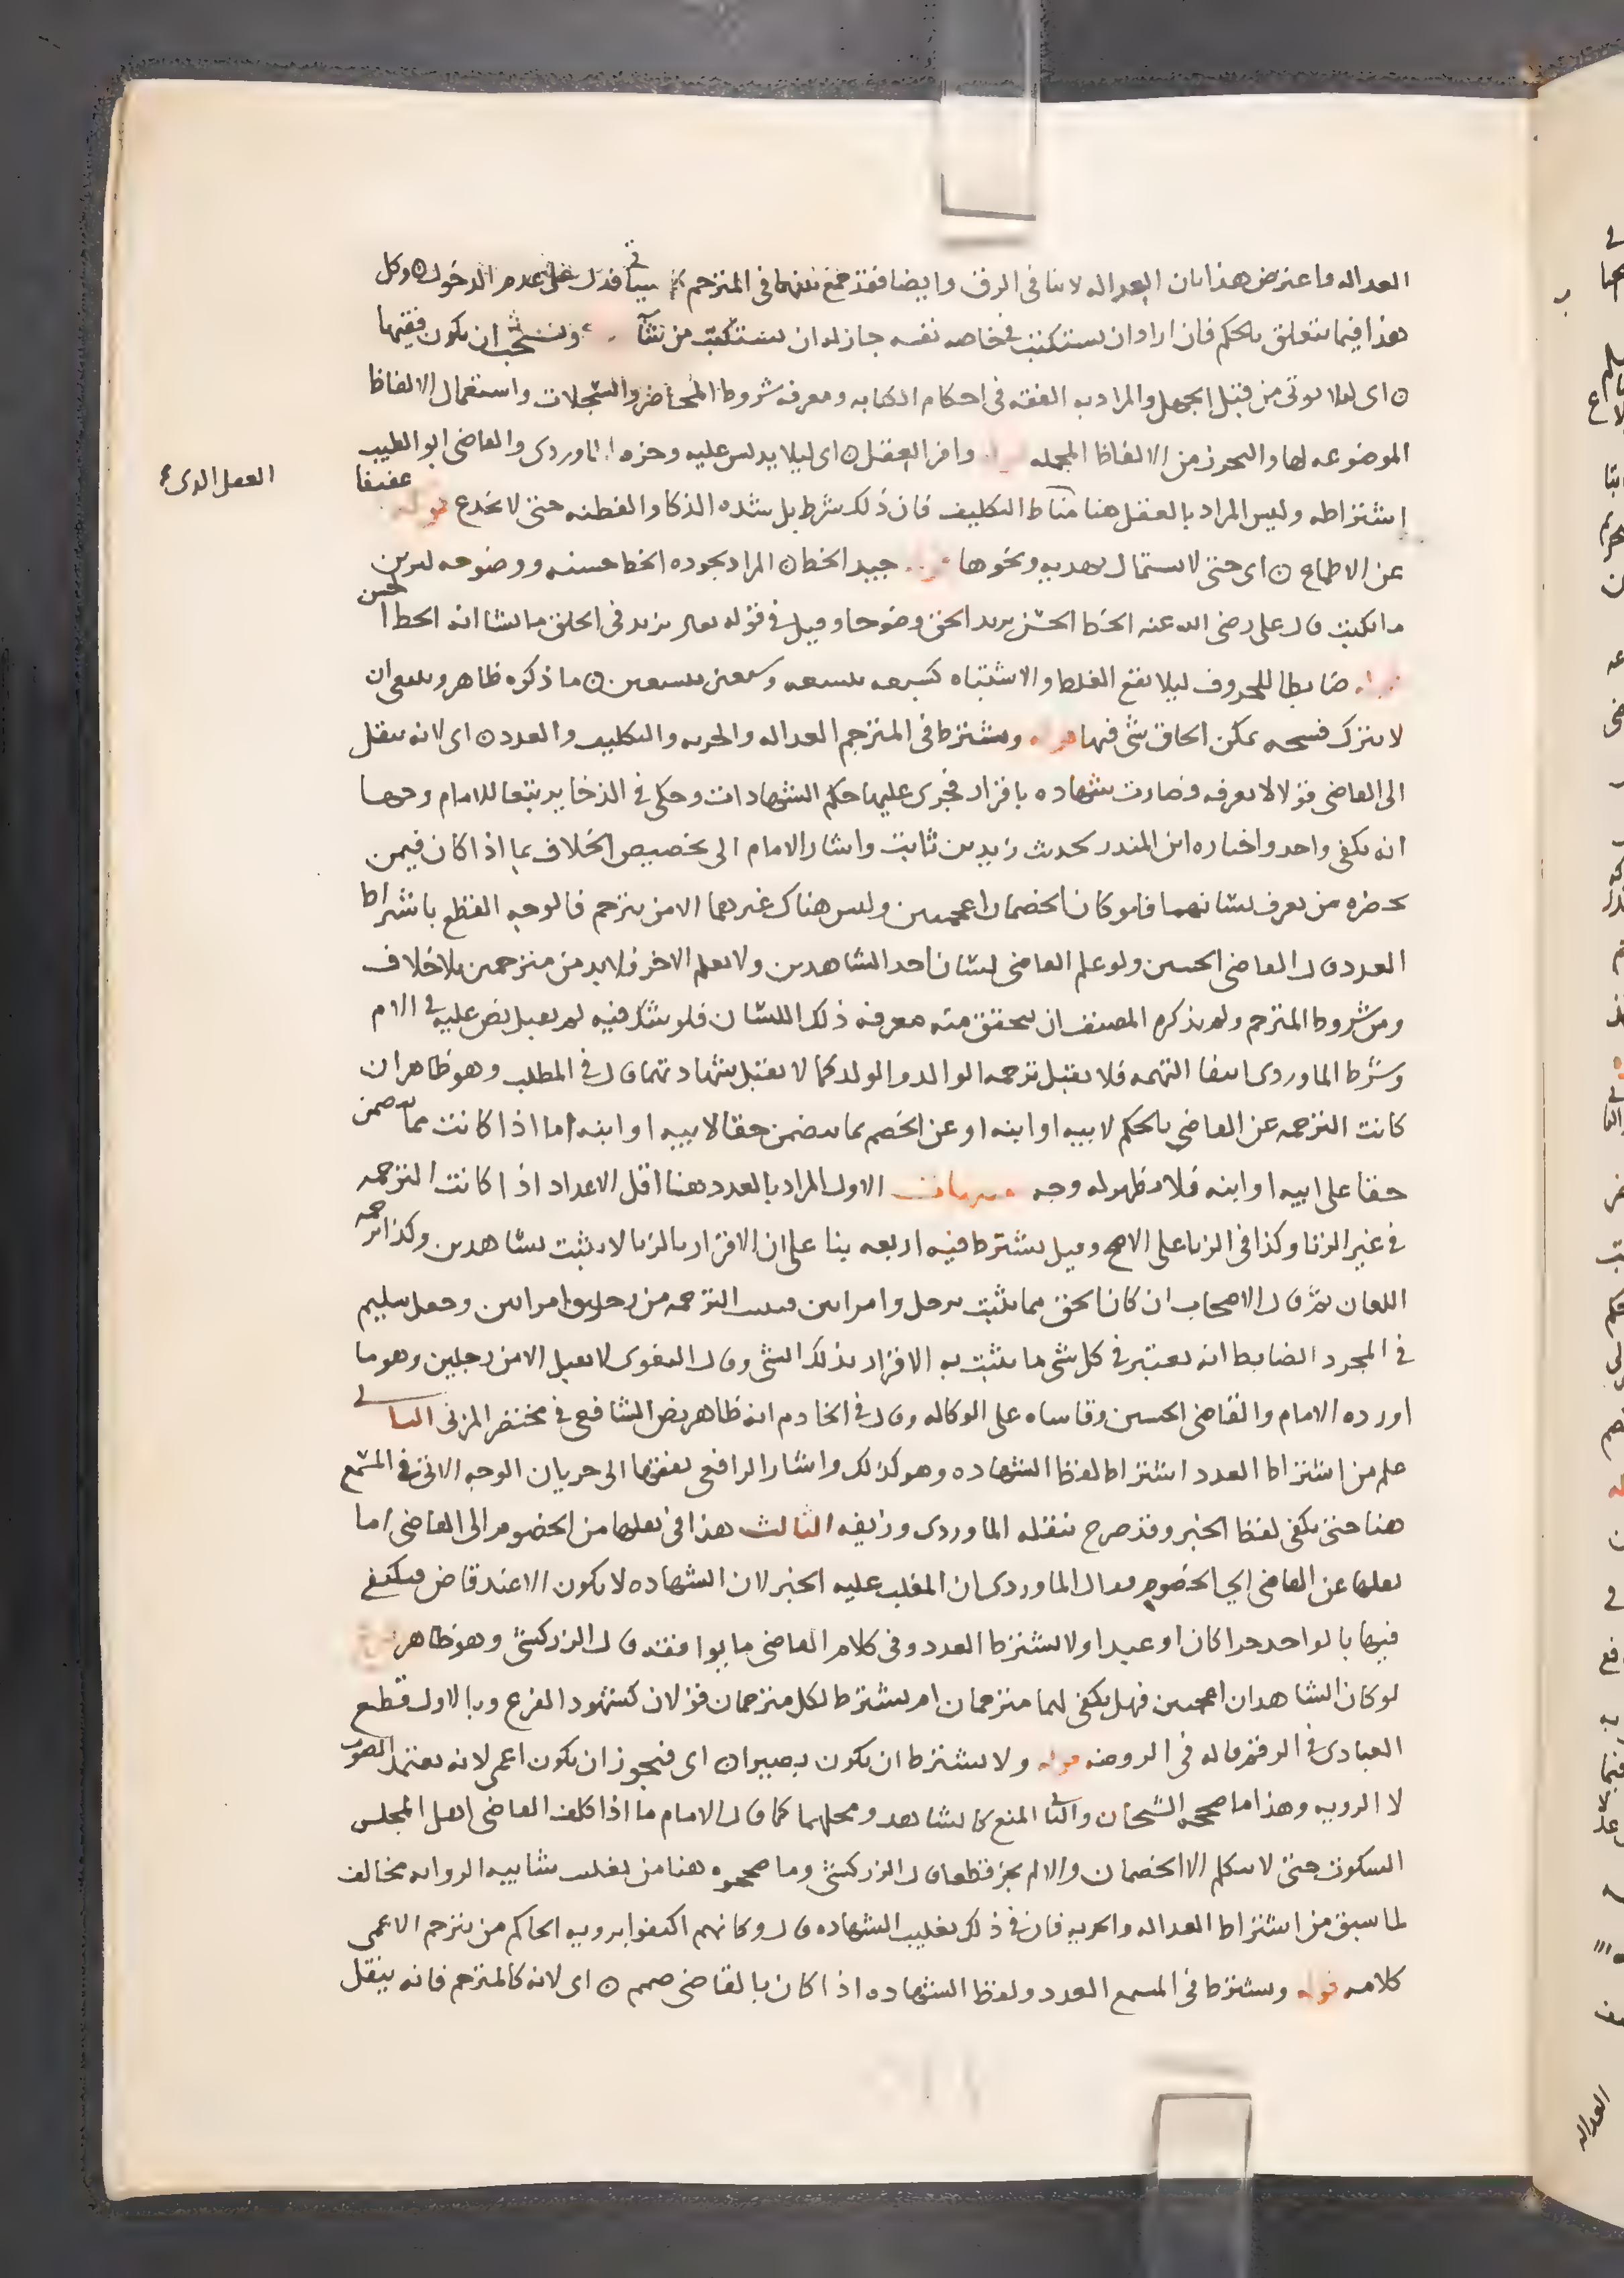 العداله واعترض هذا بان العداله لا تنافى الرق وايضا فقد جمع بينهما فى المترجم كما سياتى فدل على عدم الدخول ه وكل
هذا فيما يتعلق بالحكم فان اراد ان يستكتب فى خاصه نفسه جاز له ان يستكتب من شا ويستحب ان يكون فقيها
ه اى ليلا يوتى من قبل الجهل والمراد به الفقه فى احكام الكتابه ومعرفه شروط المحاضر والسجلات واستعمال الالفاظ
الموضوعه لها والتحرز من الالفاظ المجمله قوله وافر العقل ه اى ليلا يدلس عليه وجزم الماوردى والقاضى ابو الطيب
العقل الدى
اشتراطه وليس المراد بالعقل هنا مناط التكليف فان ذلك شرط بل شده الذكا والفطنه حتى لا يخدع قوله عفيفا
عن الاطماع ه اى حتى لا يستمال بهديه ونحوها قوله جيد الخط ه المراد بجوده الخط حسنه ووضوحه
ما يكتب قال على رضى الله عنه الخط الحسن يزيد الحق وضوحا وقيل فى قوله تعالى يزيد فى الخلق ما يشا انه الخط الحسن
قوله ضابطا للحروف ليلا يقع الغلط والاشتباه كسبعه بتسعه وسبعين بتسعين ه ما ذكره ظاهر وينبغى ان
لا يترك فسحه يمكن الحاق شى فيها قوله ويشترط فى المترجم العداله والحريه والتكليف والعدد ه اى لانه ينقل
الى القاضى قولا لا يعرفه فصارت شهاده باقرار فجرى عليها حكم الشهادات وحكى فى الذخاير تبعا للامام وجها
انه يكفى واحد واختاره ابن المنذر لحديث زيد بن ثابت واشار الامام الى تخصيص الخلاف بما اذا كان فيمن
يحضره من يعرف لسانهما فلو كان الخصمان اعجميين وليس هناك غيرهما الا من يترجم فالوجه القطع باشتراط
العدد قال القاضى الحسين ولو علم القاضى لسان احد الشاهدين ولا يعلم الاخر فلا بد من مترجمين بلا خلاف
ومن شروط المترجم ولم يذكره المصنف ان يتحقق منه معرفه ذلك اللسان فلو شك فيه لم يقبل نص عليه فى الام
وشرط الماوردى انتفا التهمه فلا يقبل ترجمه الوالد والولد كما لا يقبل شهادتهما قال فى المطلب وهو ظاهر ان
كانت الترجمه عن القاضى بالحكم لابيه او ابنه او عن الخصم بما يتضمن حقا لابيه او ابنه اما اذا كانت بما يتضمن
حقا على ابيه او ابنه فلا يظهر له وجه تنبيهات الاول المراد بالعدد هنا اقل الاعداد اذا كانت الترجمه
فى غير الزنا وكذا فى الزنا على الاصح وقيل يشترط فيه اربعه بنا على ان الاقرار بالزنا لا يثبت بشاهدين وكذا ترجمه
اللعان ثم قال الاصحاب ان كان الحق مما يثبت برجل وامراتين قبلت الترجمه من رجل وامراتين وجعل سليم
فى المجرد الضابط انه يعتبر فى كل شى ما يثبت به الاقرار بذلك الشى وقال البغوى لا يقبل الا من رجلين وهو ما
اورده الامام والقاضى الحسين وقاساه على الوكاله وقال فى الخادم انه ظاهر نص الشافعى فى مختصر المزنى الثانى
علم من اشتراط العدد اشتراط لفظ الشهاده وهو كذلك واشار الرافعى بعقبها الى جريان الوجه الاتى فى المسمع
هنا حتى يكفى لفظ الخبر وقد صرح بنقله الماوردى وزيفه الثالث هذا فى نقلها من الخصوم الى القاضى اما
نقلها عن القاضى الى الخصوم فقال الماوردى ان المغلب عليه الخبر لان الشهاده لا يكون الا عند قاض فيكتفى
فيها بالواحد حرا كان او عبدا ولا يشترط العدد وفى كلام القاضى ما يوافقه قال الزركشى وهو ظاهر فرع
لو كان الشاهدان اعجميين فهل يكفى لهما مترجمان ام يشترط لكل مترجمان قولان كشهود الفرع وبالاول قطع
العبادى فى الرقم قاله فى الروضه قوله ولا يشترط ان يكون بصيرا ه اى فيجوز ان يكون اعمى لانه يعتمد الصوت
لا الرويه وهذا ما صححه الشيخان والثانى المنع كالشاهد ومحلهما كما قال الامام ما اذا كلف القاضى اهل المجلس
السكوت حتى لا يتكلم الا الخصمان والا لم يجز قطعا قال الزركشى وما صححوه هنا من تغليب شاييه الروايه مخالف
لما سبق من اشتراط العداله والحريه فان فى ذلك تغليب الشهاده قال وكانهم اكتفوا برويه الحاكم من يترجم الاعمى
كلامه قوله ويشترط فى المسمع العدد ولفظ الشهاده اذا كان بالقاضى صمم ه اى لانه كالمترجم فانه ينقل
العداله